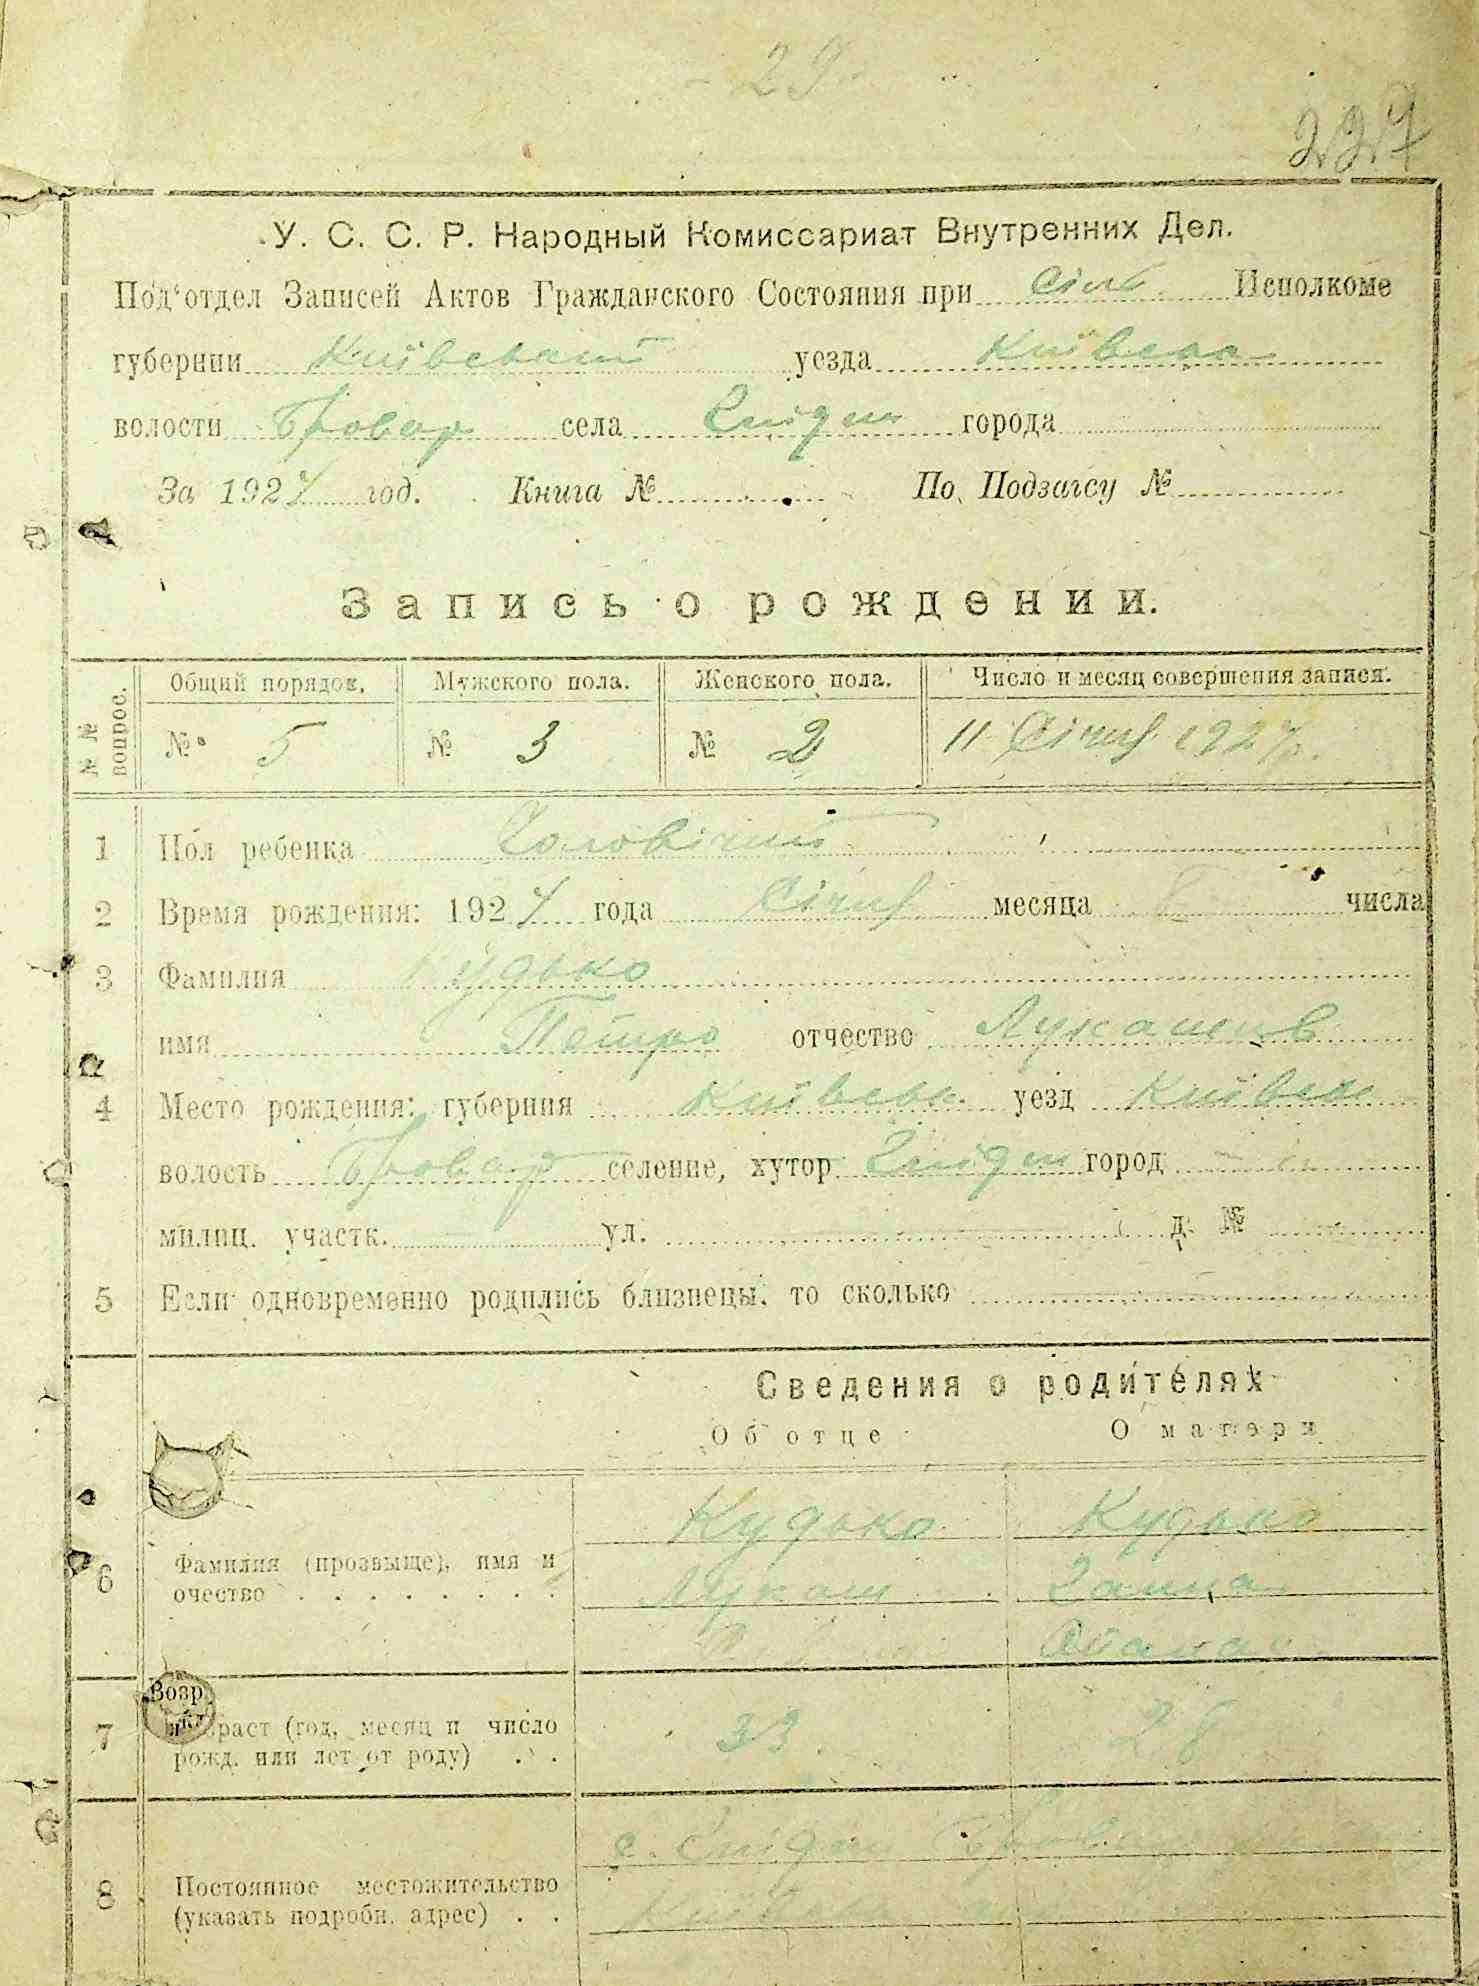 29
227
У. С. С. Р. Народный Комиссариат Внутренних Дел.
Под'отдел Записей Актов Гражданского Состояния при Сіль Исполкоме
губернии уезда
волости Бровар села города
За 1924 год. Книга № По Подзагсу №
Запись о рождении.
№№ вопрос. Общий порядок. Мужского пола. Женского пола. Число и месяц совершения записи.
№ 5 № 3 № 2 11 Січня 1924 р.
1 Пол ребенка Чоловічий
2 Время рождения: 1924 года Січня месяца числа
3 Фамилия Кудько
имя Петро отчество Лукашов
4 Место рождения: губерния уезд
волость Бровар селение, хутор город
милиц. участк. ул. д. №
5 Если одновременно родились близнецы, то сколько
Сведения о родителях
Об отце О матери
Кудько Кудько
6 Фамилия (прозвыще), имя и
очество Лукаш Ганна
Возр
7 раст (год, месяц и число 33 28
рожд. или лет от роду)
с.
8 Постоянное местожительство
(указать подробн. адрес)